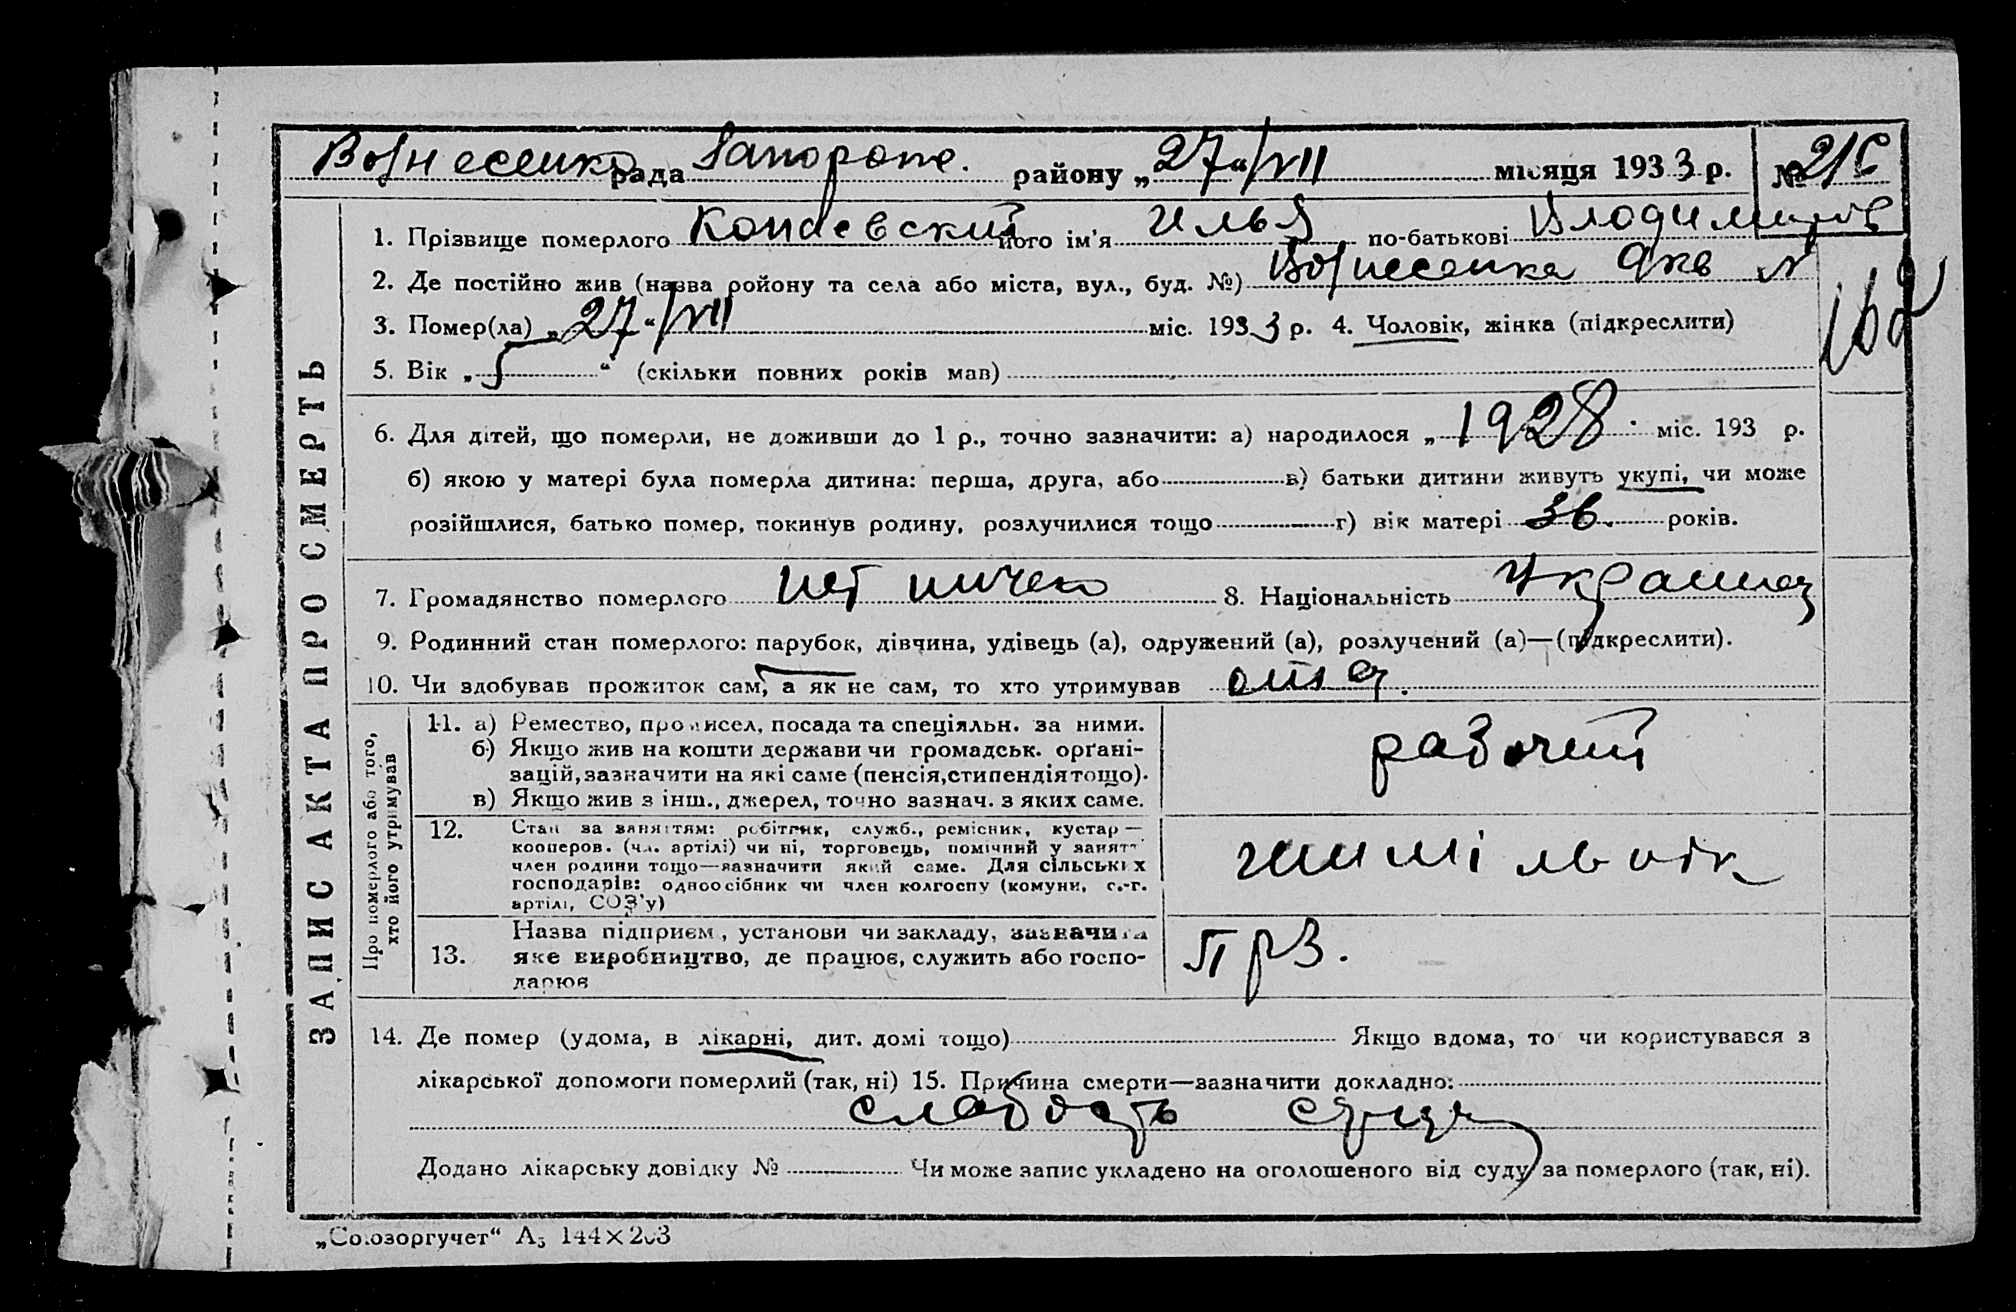 Вознесенко рада Запорож. району „27“/VII місяця 1933 р. № 216
1. Прізвище померлого Копаевский його ім'я Илья по-батькові Володимиров
2. Де постійно жив (назва ройону та села або міста, вул., буд. №) Вознесенка 9 кв №
162
3. Помер(ла) „27“/VII міс. 1933 р. 4. Чоловік, жінка (підкреслити)
5. Вік „5“ (скільки повних років мав)
6. Для дітей, що померли, не доживши до 1 р., точно зазначити: а) народилося „1928 міс. 193 р.
б) якою у матері була померла дитина: перша, друга, або в) батьки дитини живуть укупі, чи може
розійшлися, батько помер, покинув родину, розлучилися тощо г) вік матері 36 років.
7. Громадянство померлого нет ничего 8. Національність Украинец
9. Родинний стан померлого: парубок, дівчина, удівець (а), одружений (а), розлучений (а)—(підкреслити).
10. Чи здобував прожиток сам, а як не сам, то хто утримував отец.
ЗАПИС АКТА ПРО СМЕРТЬ
Про померлого або того, хто його утримував
11. а) Ремество, промисел, посада та спеціяльн. за ними.
б) Якщо жив на кошти держави чи громадськ. орґані-
зацій, зазначити на які саме (пенсія, стипендія тощо).
в) Якщо жив з інш., джерел, точно зазнач. з яких саме.
рабочий
12. Стан за заняттям: робітник, служб., ремісник, кустар—
кооперов. (чл. артілі) чи ні, торговець, помічний у занятт
член родини тощо—зазначити який саме. Для сільських
господарів: одноосібник чи член колгоспу (комуни, с.-г.
артілі, СОЗ'у)
13. Назва підприєм, установи чи закладу, зазначити
яке виробництво, де працює, служить або госпо-
дарює
ПРЗ.
14. Де помер (удома, в лікарні, дит. домі тощо) Якщо вдома, то чи користувався з
лікарської допомоги померлий (так, ні) 15. Причина смерти—зазначити докладно:
слабость сердца
Додано лікарську довідку № Чи може запис укладено на оголошеного від суду за померлого (так, ні).
„Союзоргучет“ А₅ 144×203